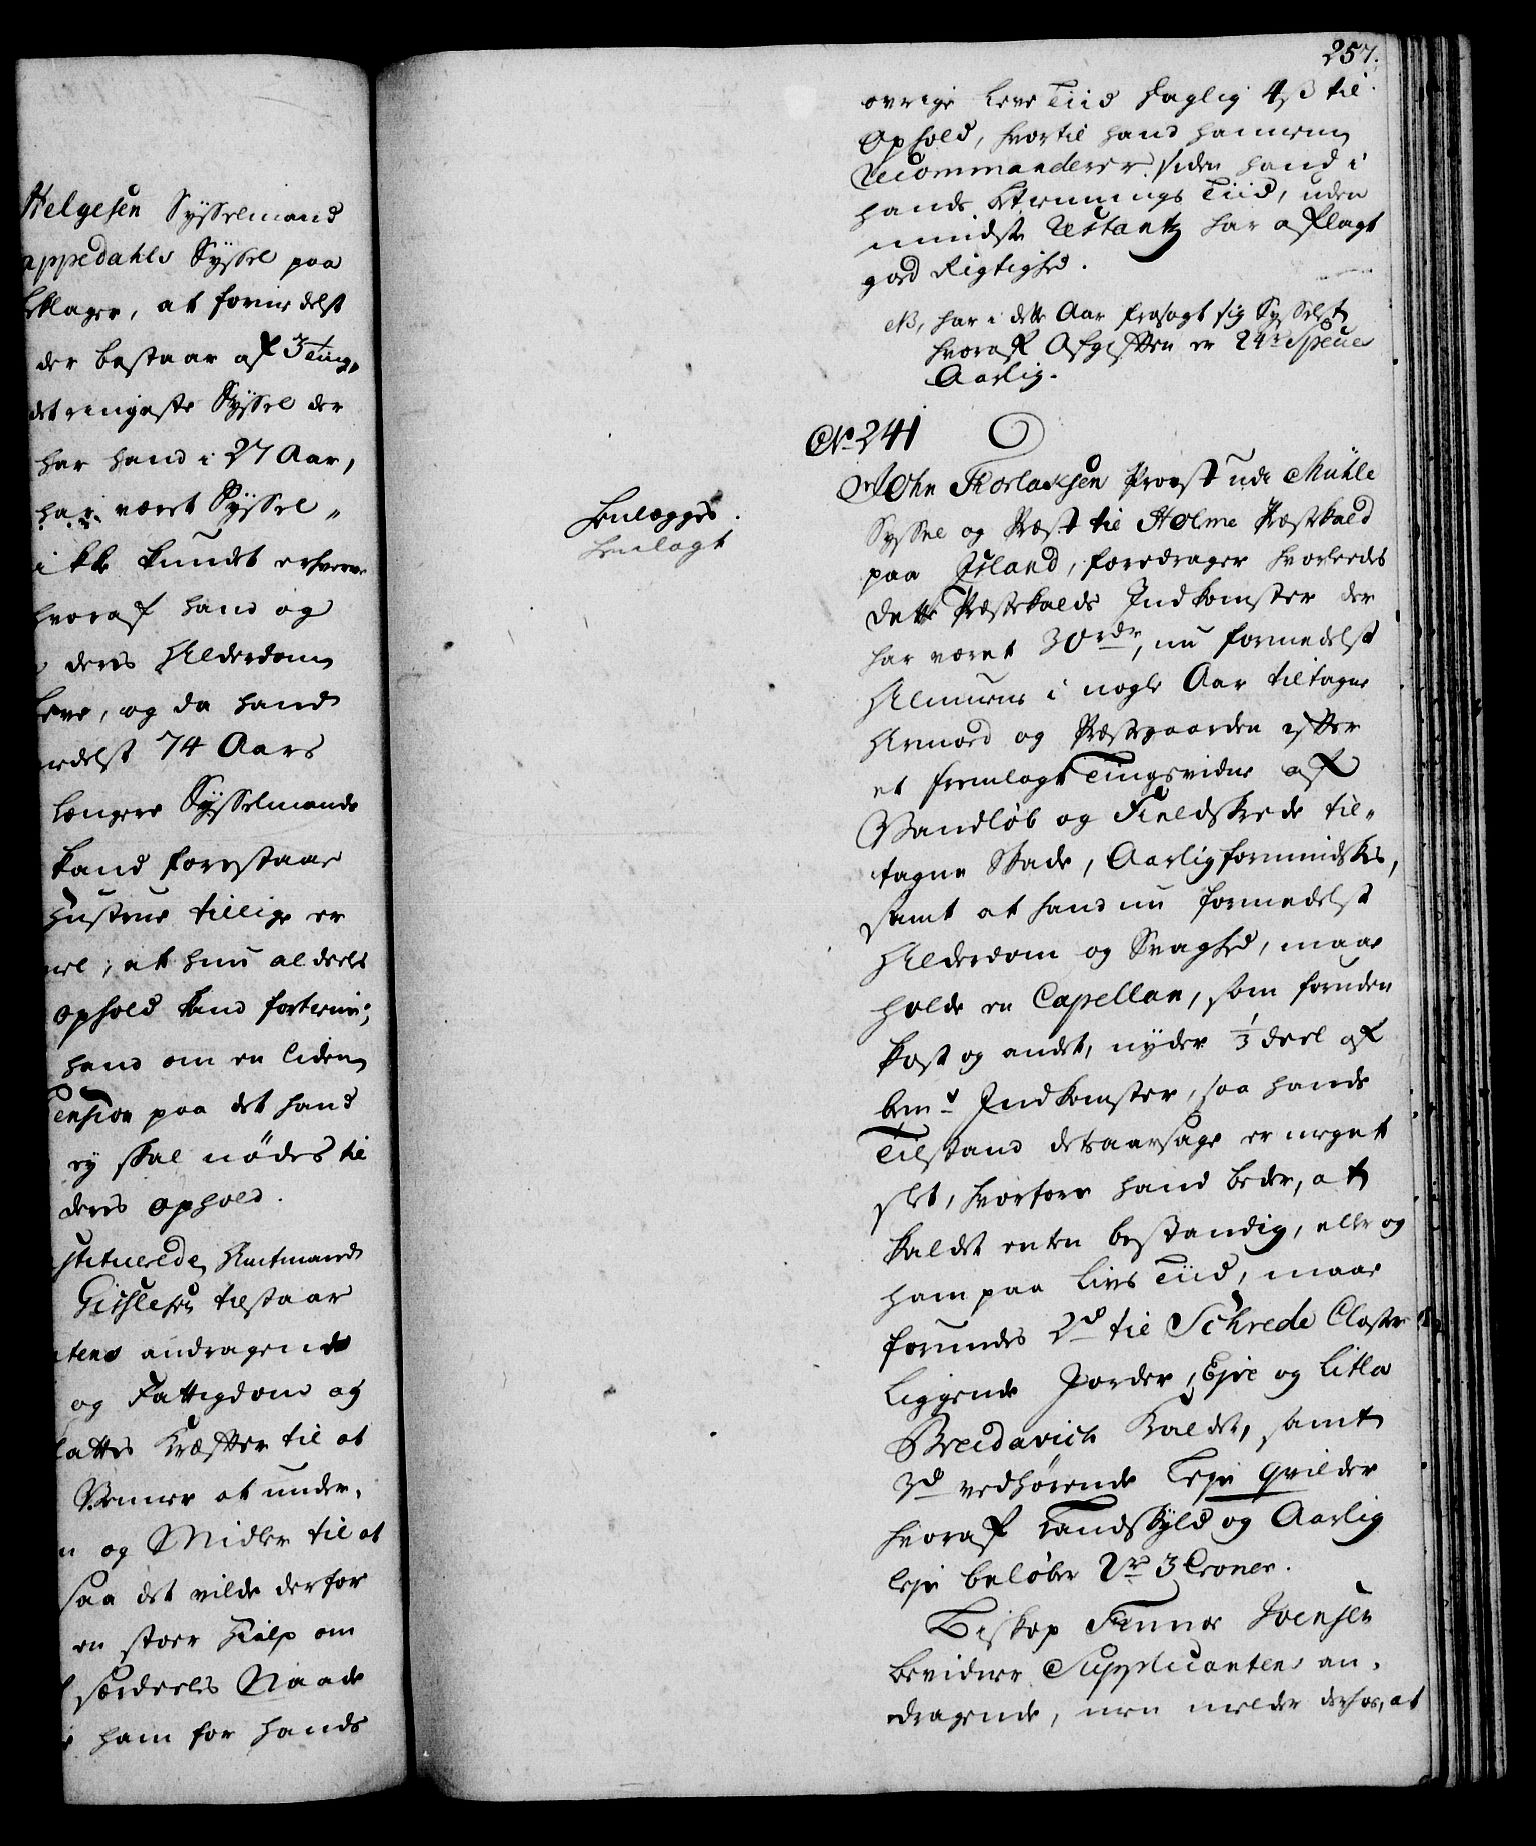 Helgesen Sysselmand
appedahls Syssel paa
klager, at formedelst
der bestaar af 3 Ting„
det ringeste Syssel der
har hand i 27 Aar,
har været Syssel„
ikke kundet erhverve
hvoraf hand og
deres Alderdom
leve, og da hand
edelst 74 Aars
længere Sysselmands
kand forestaae
Hustrue tillige er
at hun aldeeles
ophold kand fortiene;
hand om en liden
ension paa det hand
ey skal nødes til
deres ophold.
stituerede Amtmand
Gislesen tilstaar
tens andragende
og Fattigdom og
Kræfter til at
Venner at under„
og Midler til at
saa det vilde derfor
en stoer Hielp om
særdeeles Naade
ham for hands
257.
øvrige Leve Tiid daglig 4 ß til
Ophold, hvortil hand hannem
recommanderer, siden hand i
hands Tienings Tiid, uden
mindste Restantz har aflagt
goed Rigtighed.
NB, har i dette Aar frasagt sig Sysselet
hvoraf Afgiften er 24 rd Species
Aarlig.
No 241
Henlægges.
Henlagt
John Thorlaksen Provst udi Mühle
Syssel og Præst til Holme Præstekald
paa Island, foredrager hvorleedes
dette Præstekalds Indkomster der
har været 30 rdr, nu formedelst
Almuens i nogle Aar tiltagne
Armoed og Præstegaarden efter
et fremlagt Tingsvidne af
Vandløb og Fieldskrede til„
tagne Skade, Aarlig formindskes,
samt at hand nu formedelst
Alderdom og Svaghed, maae
holde en Capellan, som foruden
Kost og andet, nyder 1/3 deel af
bemte Indkomster, saa hands
Tilstand desaarsage er meget
slet, hvorfore hand beder, at
Kaldet enten bestandig, eller og
ham paa Livs Tiid, maae
forundes 2de til Schrede Closter
liggende Jorder, Eyre og Litla
Breidavich kaldet, samt
3de vedhørende Leye Qvilder
hvoraf Landskyld og Aarlig
Leye beløber 2 rd 3 Croner.
Biskop Finnur Joensen
bevidner Supplicantens an„
dragende, men melder derhos, at